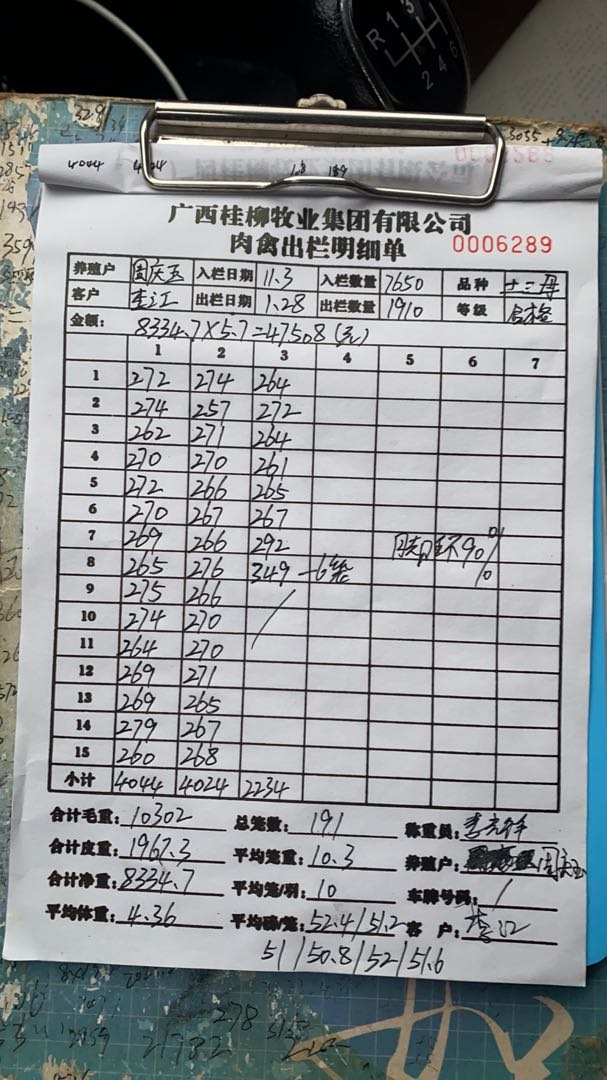 广西桂柳牧业集团有限公司
肉禽出栏明细单 0006289
养殖户 周庆玉 入栏日期 11.3 入栏数量 7650 品种
客户 李江 出栏日期 1.28 出栏数量 1910 等级 合格
金额: 8334.7×5.7=47508(元)
1 2 3 4 5 6 7
1 272 274 264
2 274 257 272
3 262 271 264
4 270 270 261
5 272 266 265
6 270 267 267
7 269 266 292
8 265 276 349 -6笼 90%
9 275 266
10 274 270
11 264 270
12 269 271
13 269 265
14 279 267
15 260 268
小计 4044 4024 2234
合计毛重: 10302 总笼数: 191 称重员:
合计皮重: 1967.3 平均笼重: 10.3 养殖户: 周庆玉
合计净重: 8334.7 平均笼/羽: 10 车牌号码: /
平均体重: 4.36 平均磅/笼: 52.4/51.2 客户: 李江
51/50.8/52/51.6